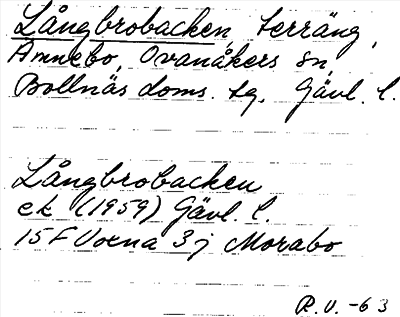 Långbrobacken, terräng,
Ämnebo, Ovanåkers sn,
Bollnäs doms. tg, Gävl. l.
Långbrobacken
ek (1959) Gävl. l.
15F Voxna 3j Morabo
R.V. -63